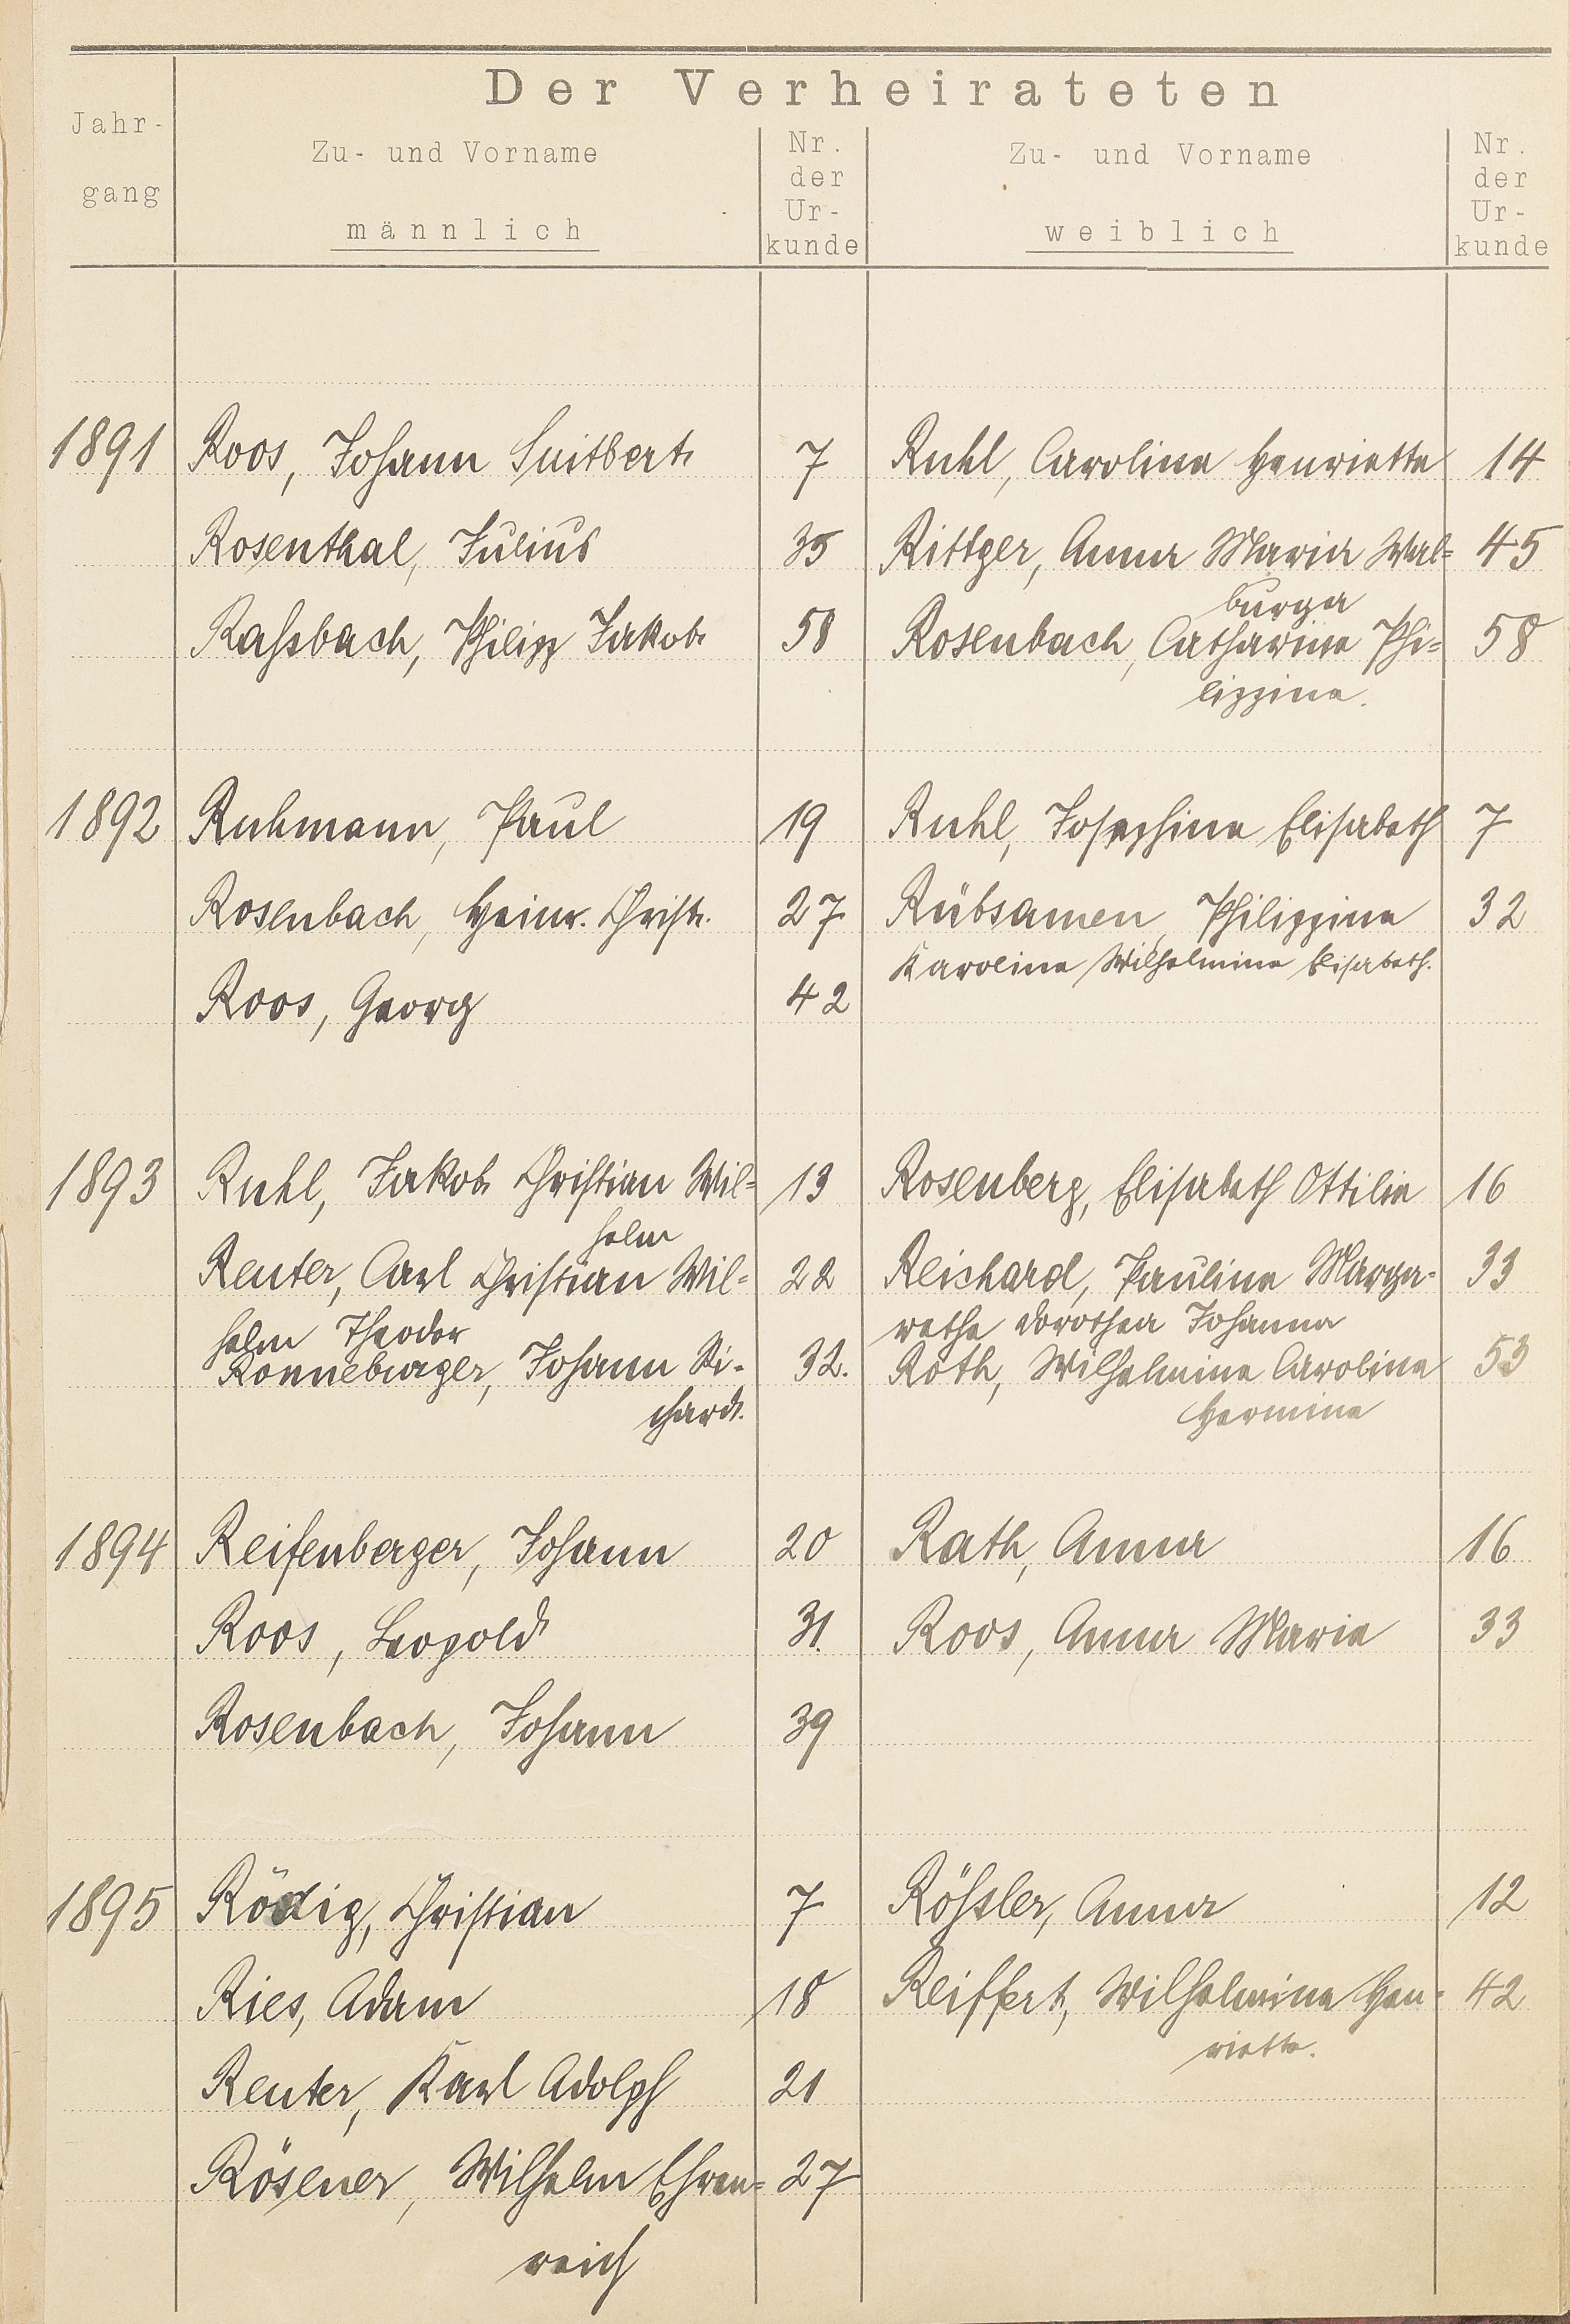 Der Verheirateten
Jahr-
gang
Zu- und Vorname
männlich
Nr.
der
Ur-
kunde
Zu- und Vorname
weiblich
Nr.
der
Ur-
kunde
1891 Roos, Johann Suitbert 7 Ruhl, Carolina Henriette 14
Rosenthal, Julius 35 Rittger, Anna Maria Wal= 45
burga
Raßbach, Philipp Jakob 58 Rosenbach, Catharina Phi= 58
lippina.
1892 Ruhmann, Paul 19 Ruhl, Josephina Elisabeth 7
Rosenbach, Heinr. Christ. 27 Rübsamen, Philippina 32
Karolina Wilhelmina Elisabeth.
Roos, Georg 42
1893 Ruhl, Jakob Christian Wil= 13 Rosenberg, Elisabeth Ottilia 16
helm
Reuter, Carl Christian Wil= 22 Reichard, Paulina Marga- 33
helm Theodor rethe Dorothea Johanna
Ronneburger, Johann Ri- 32. Roth, Wilhelmina Carolina 53
chard. Hermine
1894 Reifenberger, Johann 20 Rath, Anna 16
Roos, Leopold 31. Roos, Anna Maria 33
Rosenbach, Johann 39
1895 Rödig, Christian 7 Rößler, Anna 12
Ries, Adam 18 Reiffert, Wilhelmina Hen- 42
riette.
Reuter, Karl Adolph 21
Rösener, Wilhelm Ehren= 27
reich